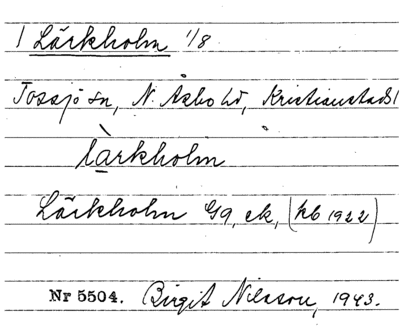 1 Lärkholm 1/8
Tossjö sn, N. Åsbo hd, Kristianstads l
làrkholm
Lärkholm Gg, ek, (kb 1922)
Nr 5504. Birgit Nilsson, 1943.